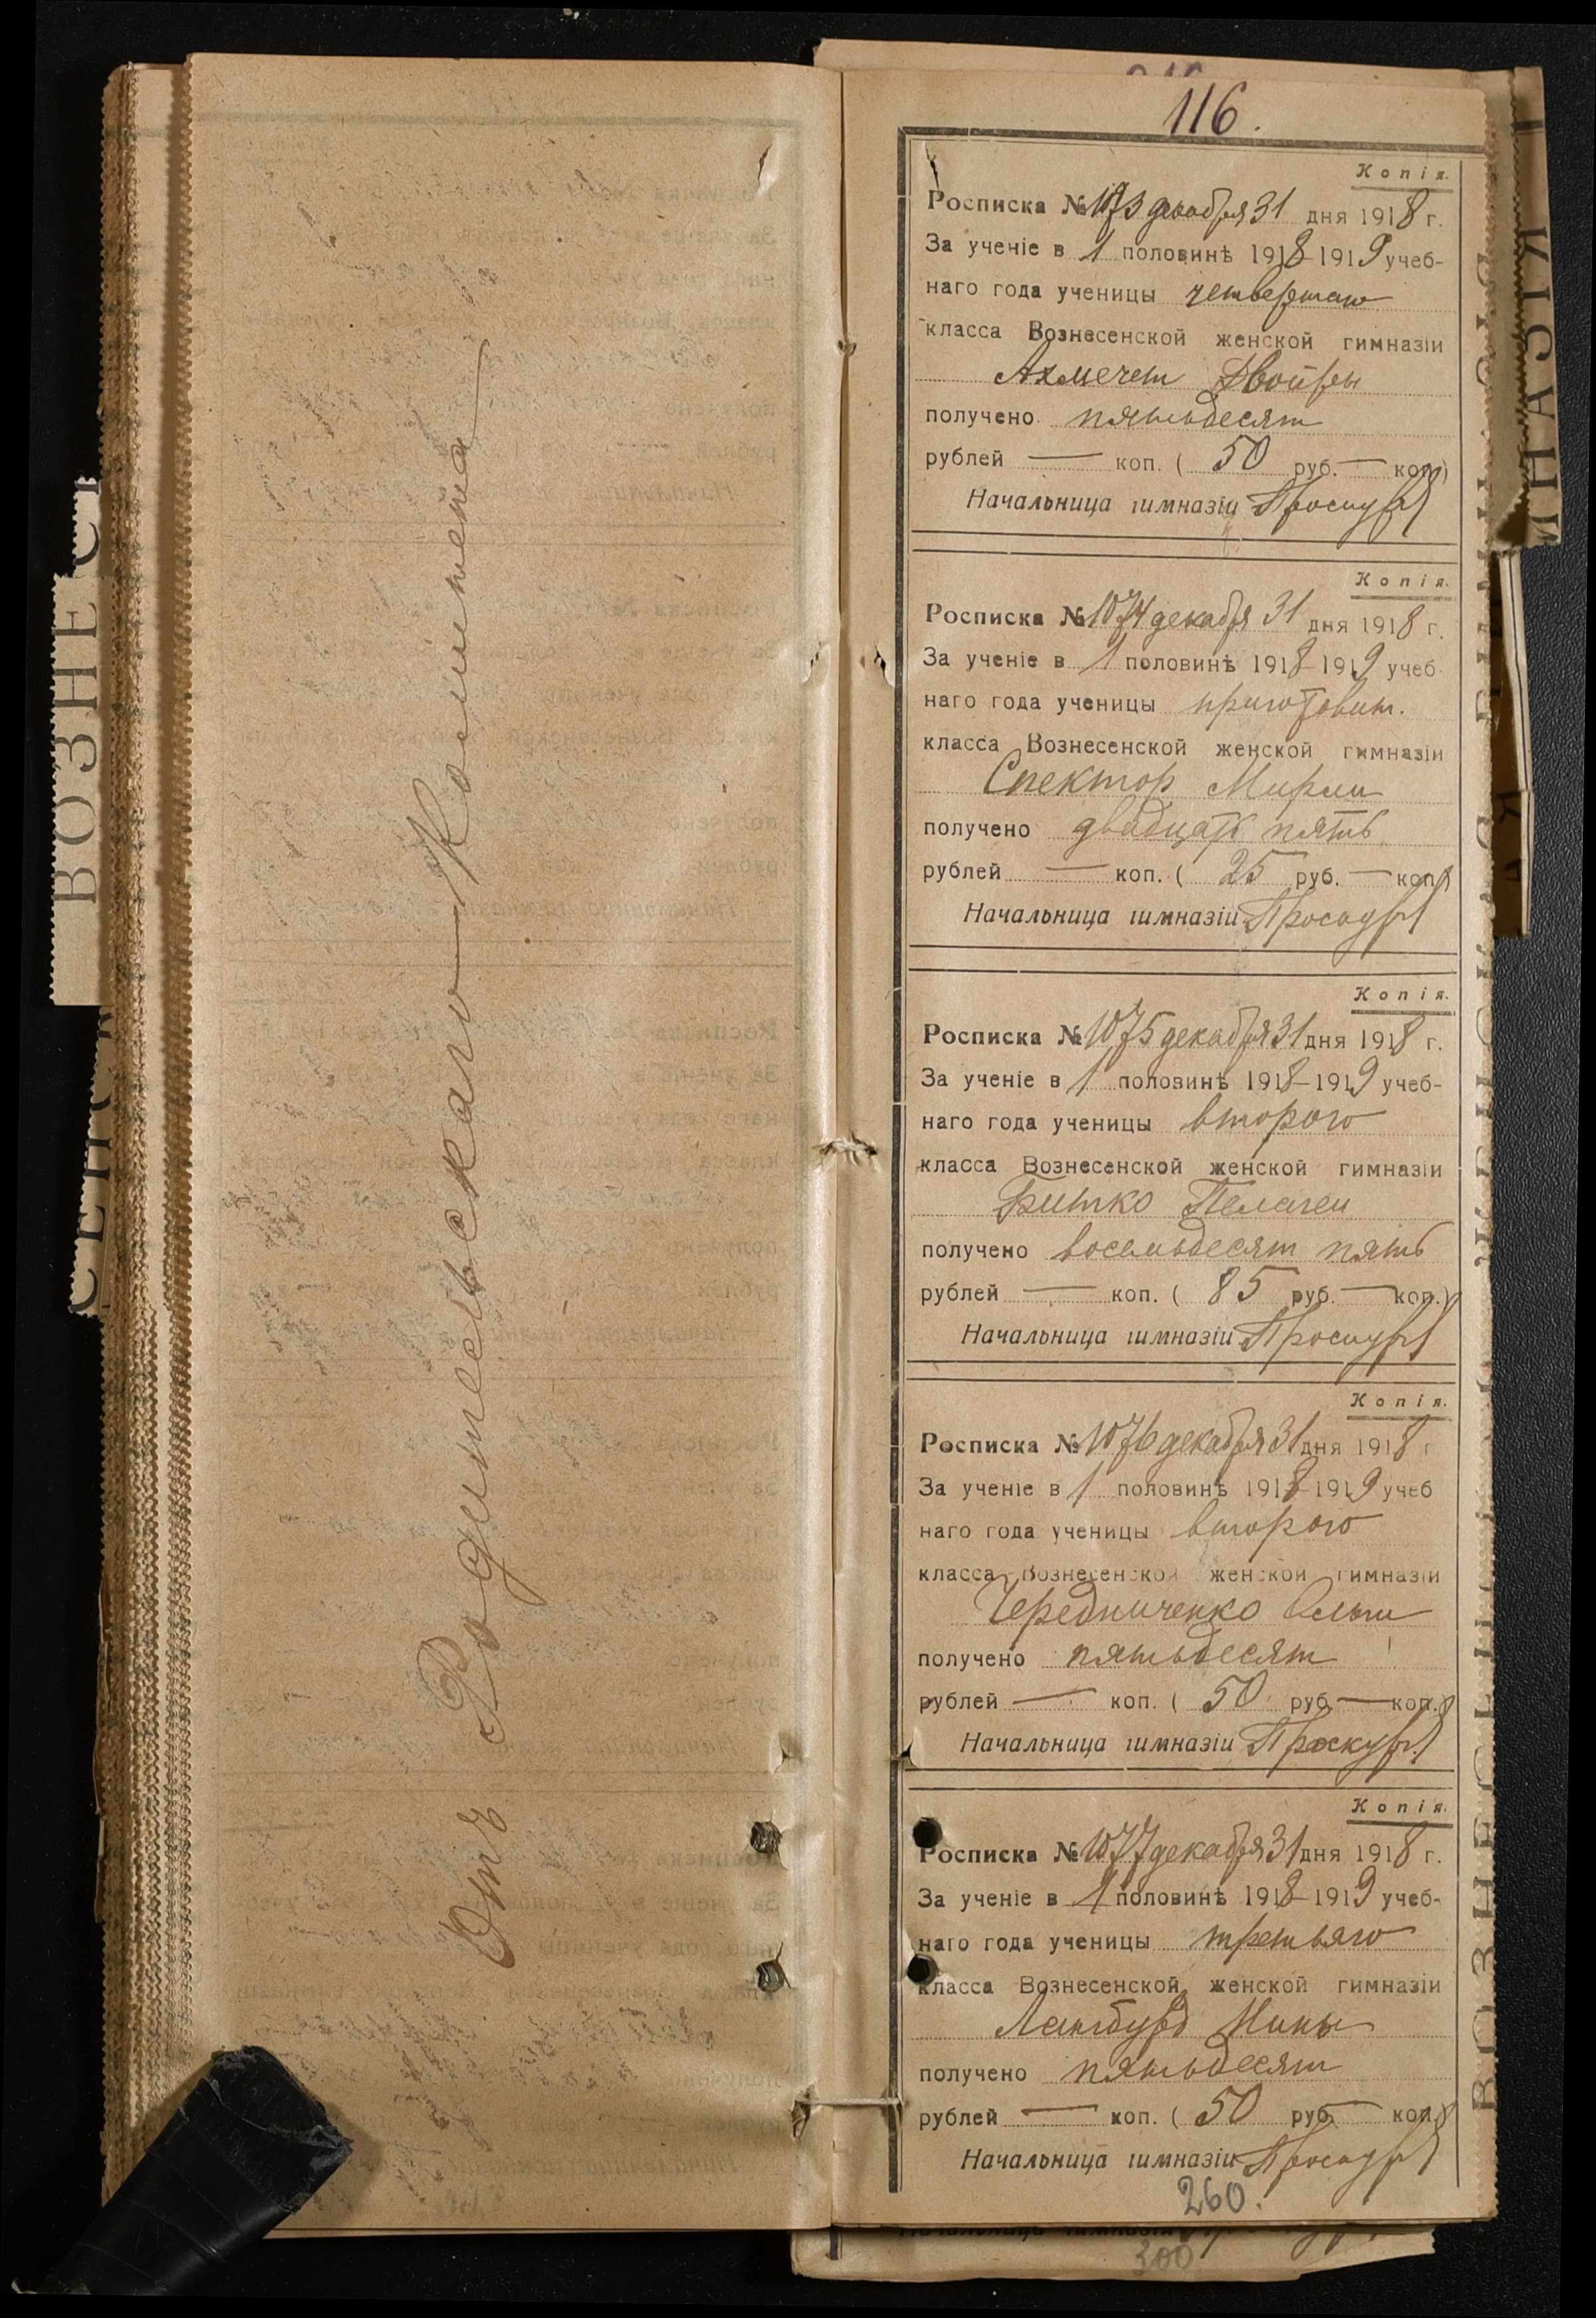 ВОЗНЕС
Отъ Родительскаго Комитета
116.
Копія.
Росписка № 1073 декабря 31 дня 1918 г.
За ученіе в 1 половинѣ 1918-1919 учеб-
наго года ученицы четвертаго
класса Вознесенской женской гимназіи
Ахмечет Двойры
получено пятьдесят
рублей — коп. ( 50 руб. — коп.)
Начальница гимназіи Проскур
Копія.
Росписка № 1074 декабря 31 дня 1918 г.
За ученіе в 1 половинѣ 1918-1919 учеб-
наго года ученицы приготовит.
класса Вознесенской женской гимназіи
Спектор Мирли
получено двадцать пять
рублей — коп. ( 25 руб. — коп.)
Начальница гимназіи Проскур
Копія.
Росписка № 1075 декабря 31 дня 1918 г.
За ученіе в 1 половинѣ 1918-1919 учеб-
наго года ученицы второго
класса Вознесенской женской гимназіи
Битко Пелагеи
получено восемьдесят пять
рублей — коп. ( 85 руб. — коп.)
Начальница гимназіи Проскур
Копія.
Росписка № 1076 декабря 31 дня 1918 г
За ученіе в 1 половинѣ 1918-1919 учеб
наго года ученицы второго
класса Вознесенской женской гимназіи
Чередниченко Ольги
получено пятьдесят
рублей — коп. ( 50 руб. — коп.)
Начальница гимназіи Проскур
Копія.
Росписка № 1077 декабря 31 дня 1918 г.
За ученіе в 1 половинѣ 1918-1919 учеб-
наго года ученицы третьяго
класса Вознесенской женской гимназіи
Ламбурд Нины
получено пятьдесят
рублей — коп. ( 50 руб. — коп.)
Начальница гимназіи Проскур
260.
300